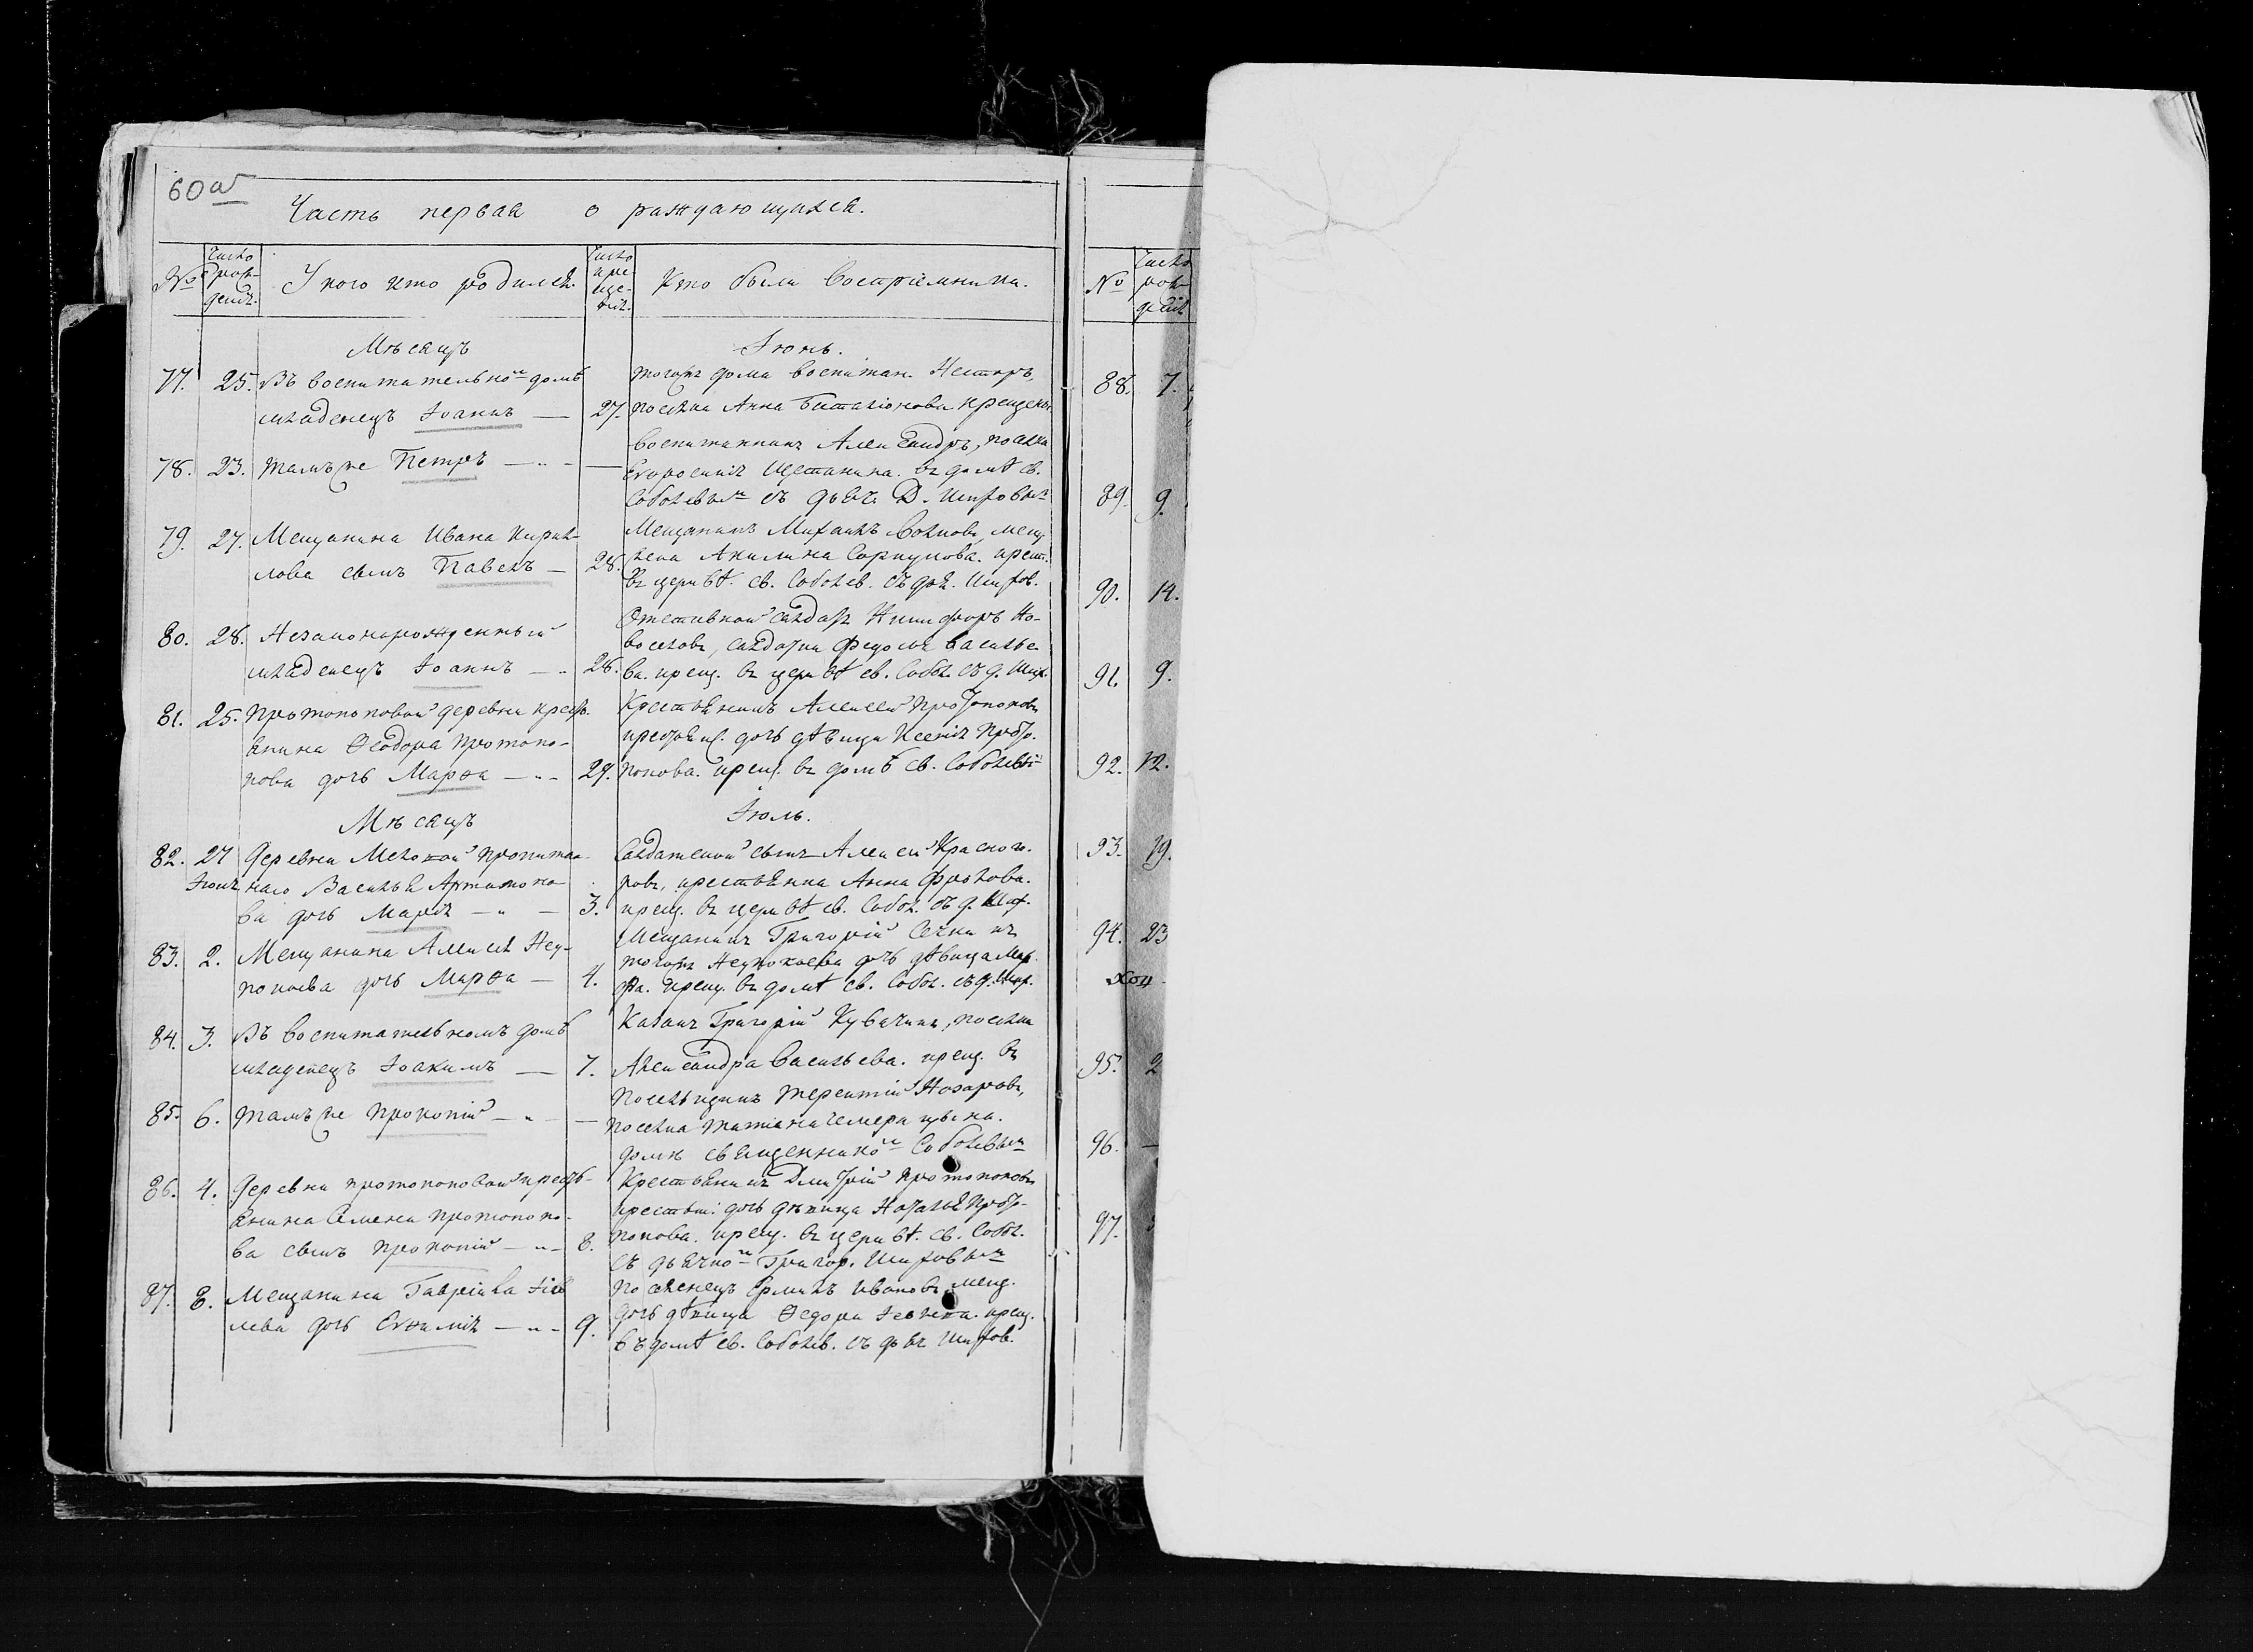 60 аб
Часть первая о раждающихся.
№ Число рож-дені. У кого кто родился. Число кре-ще-нія. Кто были Воспріемники.
Мѣсяцъ Іюнь.
77. 25. Въ воспитательно^м домѣ
младенецъ Іоаннъ — 27.
тогожъ дома воспитан. Нестеръ,
посѣлка Анна крещены
78. 23. Тамъже Петръ — „ — —
Воспитанникъ Александръ, поселка
въ домѣ св.
Соболевы^м съ дьяч.
79. 27. Мещанина Ивана Кирил-
лова сынъ Павелъ — 28.
Мещанинъ Михаилъ Волковъ, мещ.
Акилина крещ.
въ церквѣ. св. Соболев. съ дья.
80. 28. Незаконнорожденный
младенецъ Іоаннъ — „ 28.
Отставной салдатъ Никифоръ Но-
воселовъ, салдатка Васильe-
ва. крещ. въ церквѣ св. Собол. съ д.
81. 25. Протопоповой деревни крестъ-
янина Ѳеодора Протопо-
пова дочь Марѳа — „ — 29.
Крестьянинъ Алексей Протопоповъ
крестьян. дочь дѣвица Ксенія Прото-
попова. крещ. въ домѣ св. Соболевы^м
Мѣсяцъ Іюль.
82. 27 Іюня Деревни пропитан-
наго Василья Артамоно-
ва дочь Марія — „ — 3.
Салдатской сынъ Алексей Красного-
ровъ, крестьянка Анна Фролова.
крещ. въ церквѣ св. Собол. съ д.
83. 2. Мещанина Алексѣя Неу-
покоева дочь Марѳа — 4.
Мещанинъ Григорій
тогожъ Неупокоева дочь дѣвица Мар-
ѳа. крещ. въ домѣ св. Собол. съ д.
84. 3. Въ воспитательномъ домѣ
младенецъ Іоакимъ — 7.
Казакъ Григорій поселка
Александра Васильева. крещ. въ
85. 6. Тамъже Прокопій — „ — —
Посельщикъ Терентій Назаровъ,
поселка Татіана
домѣ священнико^м Соболевы^м
86. 4. Деревни Протопоповой крестъ-
янина Семена Протопопо-
ва сынъ Прокопій — „ — 8.
Крестьянинъ Дмитрій Протопоповъ
крестьян: дочь дѣвица Наталья Прото-
попова. крещ. въ церквѣ. св. Собол.
съ дьячко^м Григор.
87. 8. Мещанина Гавріила Іев-
лева дочь Евѳимія — „ — 9.
Поселенецъ Ермилъ Ивановъ, мещ.
дочь дѣвица Ѳедора Іевлева. крещ.
въ домѣ св. Соболев. съ дьяч.
№ Число рож-денія
88. 7.
89. 9.
90. 14.
91. 9.
92. 12.
93. 19.
94. 23
95. 2
96. —
97.